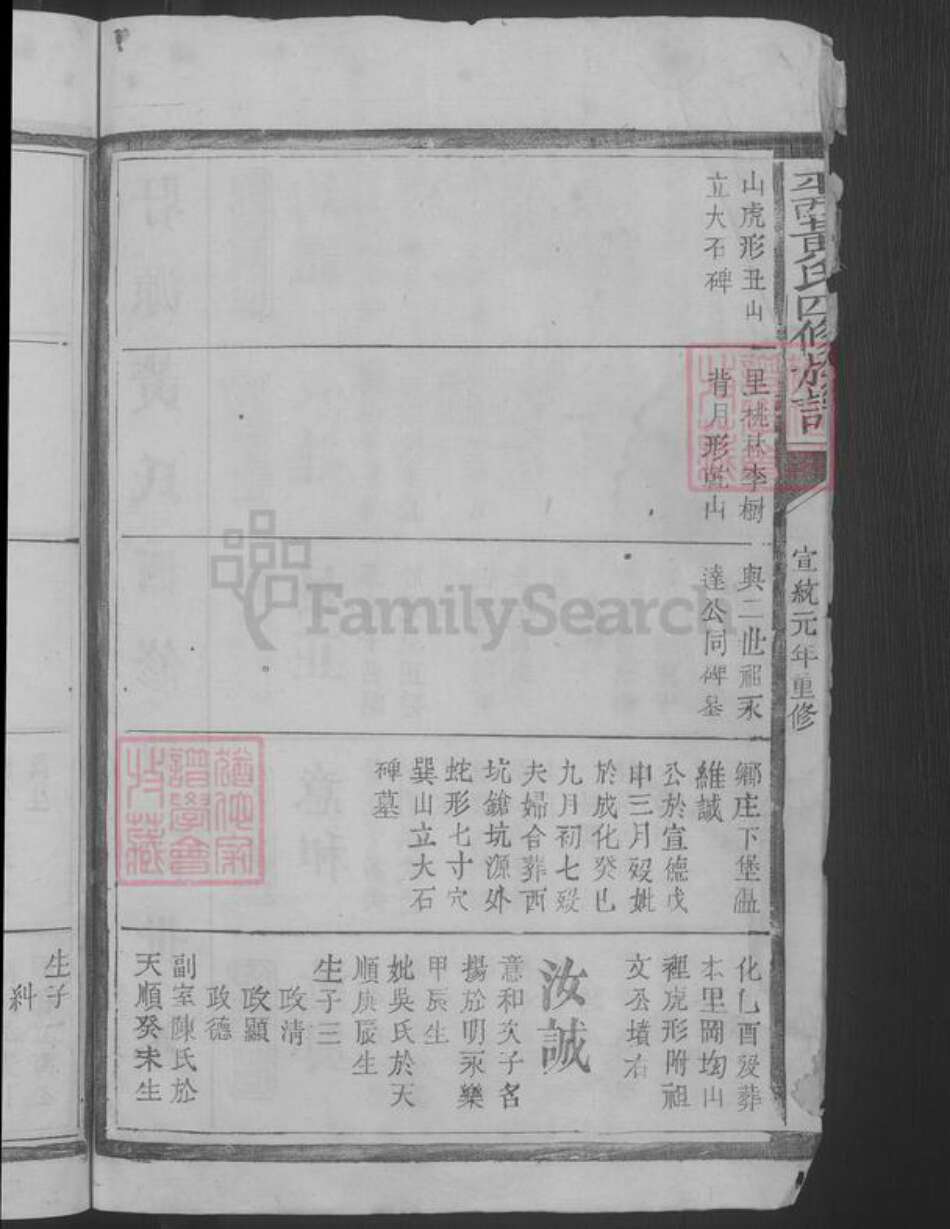 黃氏四修族譜
宣統元年重修
山虎形丑山
立大石碑
里桃林李樹
背月形山
與二世祖永
達公同碑墓
鄉庄下堡温
維誠
公於宣德戊
申三月歿妣
於成化癸巳
九月初七歿
夫婦合葬西
坑鎗坑源外
蛇形七寸穴
巽山立大石
碑墓
化乜酉歿葬
本里岡坳山
裡虎形附祖
文公墳右
汝誠
意和次子名
揚於明永樂
甲辰生
妣吳氏於天
順庚辰生
生子三
政清
政顯
政德
副室陳氏於
天順癸未生
生子
科
FamilySearch
譜學會
收藏